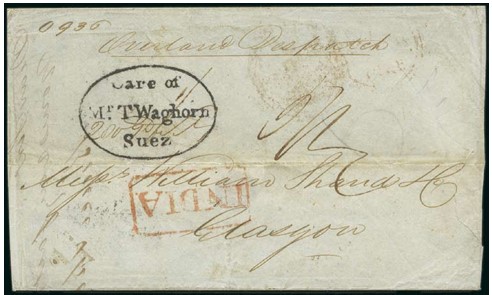 0936
Overland Despatch
Care of
Mr. T Waghorn
Suez
Messrs. William Shand & Co
INDIA
Glasgow